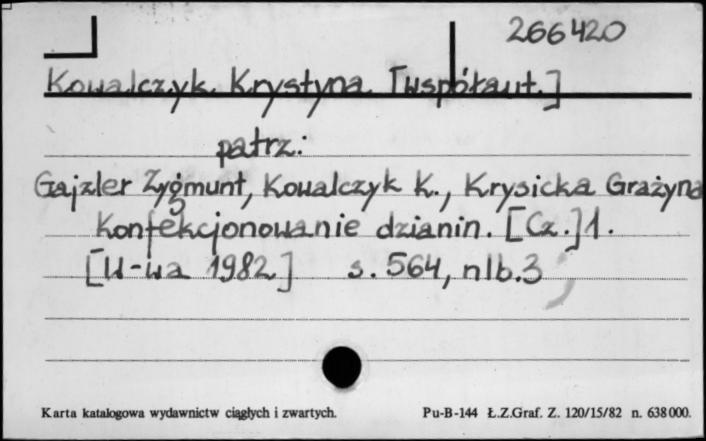 266420
Kowalczyk Krystyna [współaut.]
patrz:
Gajzler Zygmunt, Kowalczyk K., Krysicka Grażyna
Konfekcjonowanie dzianin. [Cz.]1.
[W-wa 1982] s. 564, nlb.3
Karta katalogowa wydawnictw ciągłych i zwartych. Pu-B-144 Ł.Z.Graf. Z. 120/15/82 n. 638000.